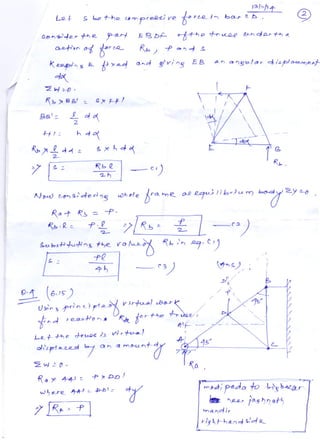 ②
Let S be the compressive force in bar CD.
considering the part EBDF of the truss under the
action of force Rb, P and S
Keeping E fixed and giving EB an angular displacement
dα
ΣW=0.
Rb × BB' = S × FF'
BB' = l/2 dα
FF' = h dα
Rb × l/2 dα = S × h dα
⇒ S = Rb.l/2h —(1)
Now considering whole frame as equilibrium body ΣY=0
Ra + Rb = P.
Rb.l = P.l/2 ⇒ Rb = P/2 —(2)
Substituting the value of Rb in eq. (1)
S = Pl/4h —(3) (Ans)
Q.4 (6.15)
Using principle of virtual work
find reaction Ra for the truss.
Let the truss is virtual
displaced by an amount dy
ΣW=0.
Ra × AA' = P × DD'
where AA' = DD' = dy
⇒ Ra = P
F
E
B
Rb
B
45°
D
A
45°
C
Ra
modipada to
near jagannath
mandir
right hand side